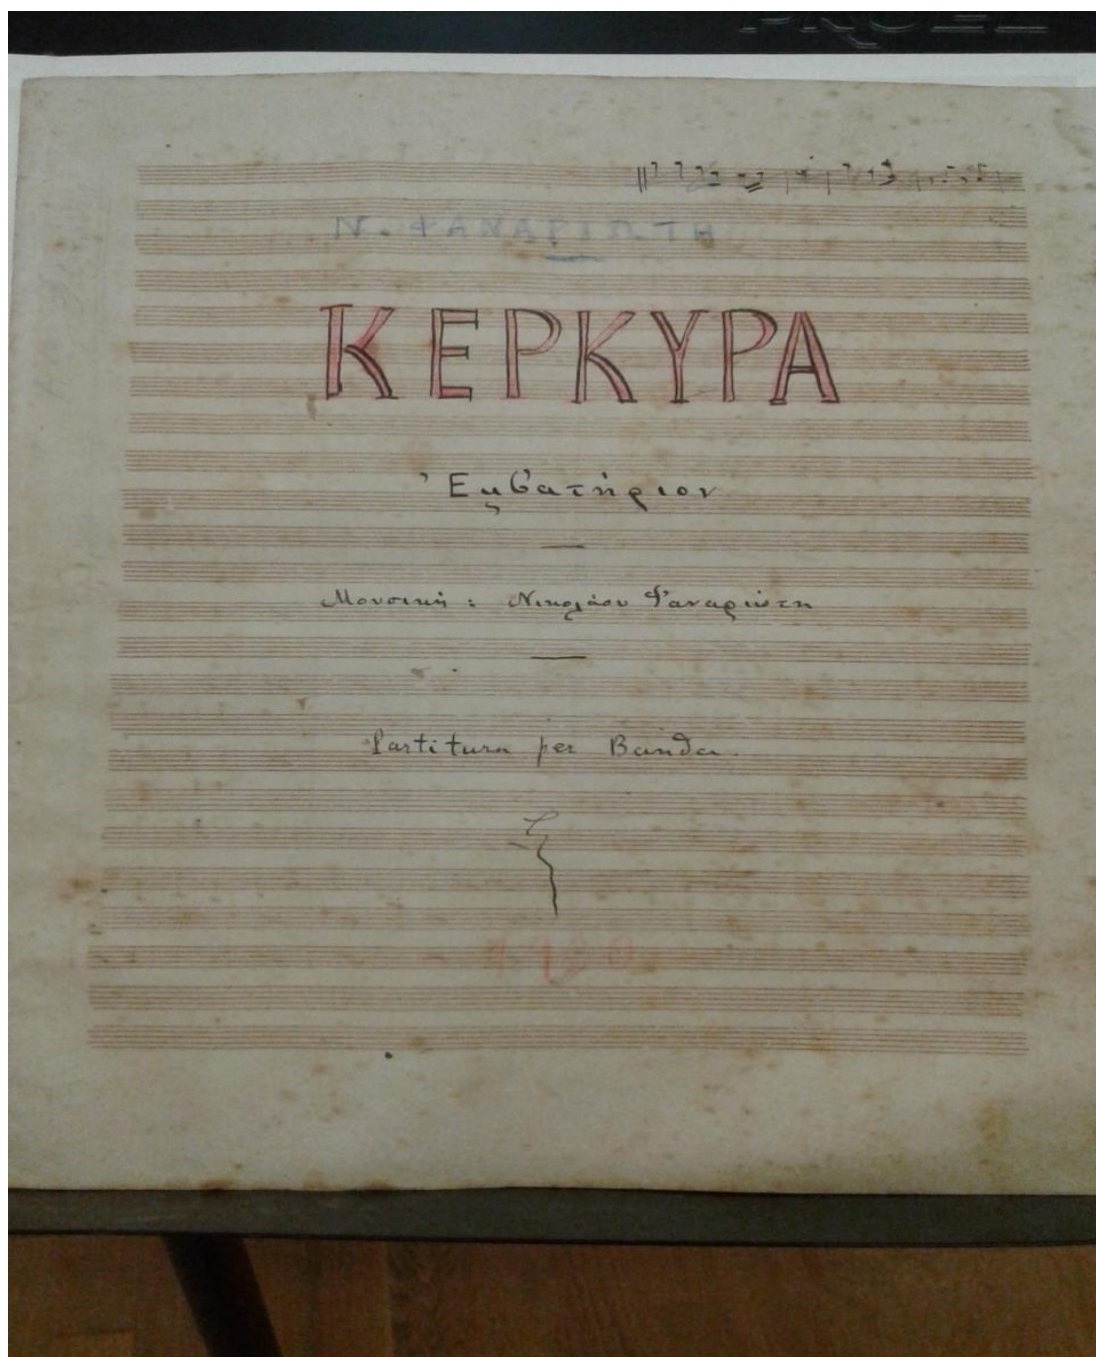 Ν. ΦΑΝΑΡΙΩΤΗ
ΚΕΡΚΥΡΑ
Ἐμβατήριον
Μουσική : Νικολάου Φαναριώτη
Partitura per Banda.
1920